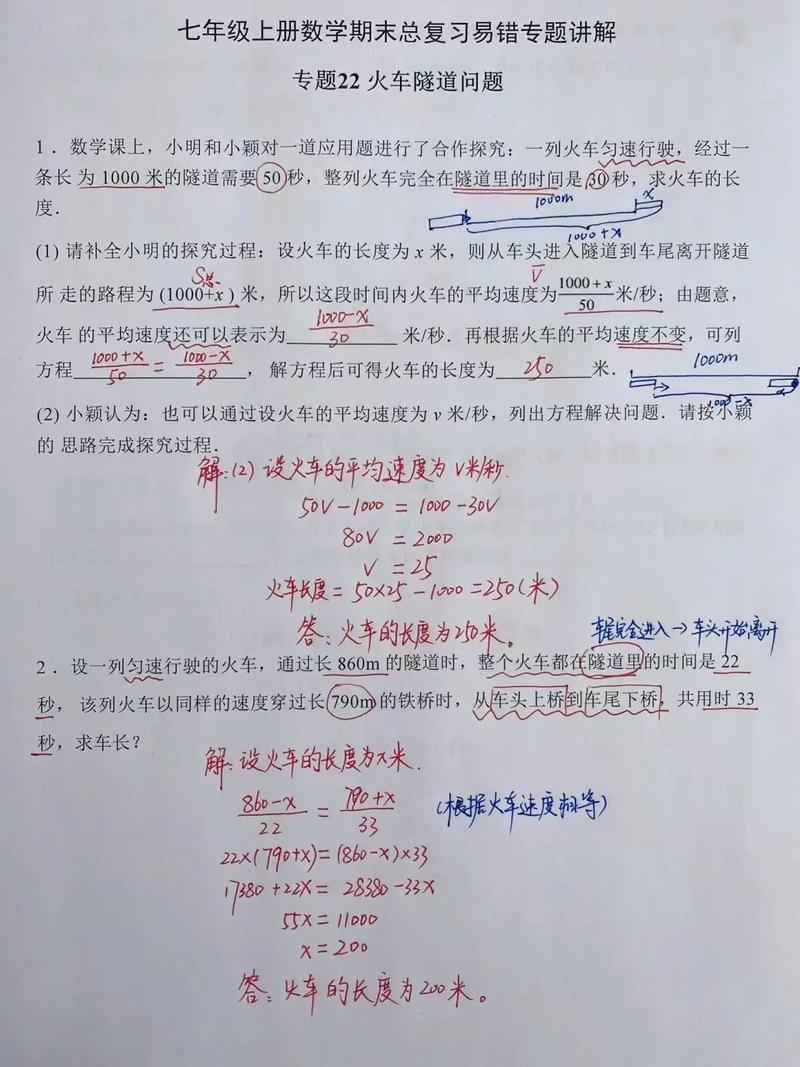 七年级上册数学期末总复习易错专题讲解
专题22 火车隧道问题
1．数学课上，小明和小颖对一道应用题进行了合作探究：一列火车匀速行驶，经过一
条长 为 1000 米的隧道需要 50 秒，整列火车完全在隧道里的时间是 30 秒，求火车的长
度．
1000m x
1000+x
(1) 请补全小明的探究过程：设火车的长度为 x 米，则从车头进入隧道到车尾离开隧道
S总 V
所 走的路程为 (1000+x ) 米，所以这段时间内火车的平均速度为 (1000+x)/50 米/秒；由题意，
火车 的平均速度还可以表示为 (1000-x)/30 米/秒．再根据火车的平均速度不变，可列
方程 (1000+x)/50 = (1000-x)/30 ， 解方程后可得火车的长度为 250 米．
1000m
1000-x x
(2) 小颖认为：也可以通过设火车的平均速度为 v 米/秒，列出方程解决问题．请按小颖
的 思路完成探究过程．
解:(2) 设火车的平均速度为 V米/秒.
50V-1000 = 1000-30V
80V = 2000
V = 25
火车长度 = 50×25-1000=250(米)
答：火车的长度为250米。
车尾完全进入→车头开始离开
2．设一列匀速行驶的火车，通过长 860m 的隧道时，整个火车都在隧道里的时间是 22
秒， 该列火车以同样的速度穿过长 790m 的铁桥时，从车头上桥到车尾下桥，共用时 33
秒，求车长？
解:设火车的长度为x米.
(860-x)/22 = (790+x)/33 (根据火车速度相等)
22×(790+x)=(860-x)×33
17380+22x = 28380-33x
55x = 11000
x = 200
答：火车的长度为200米。